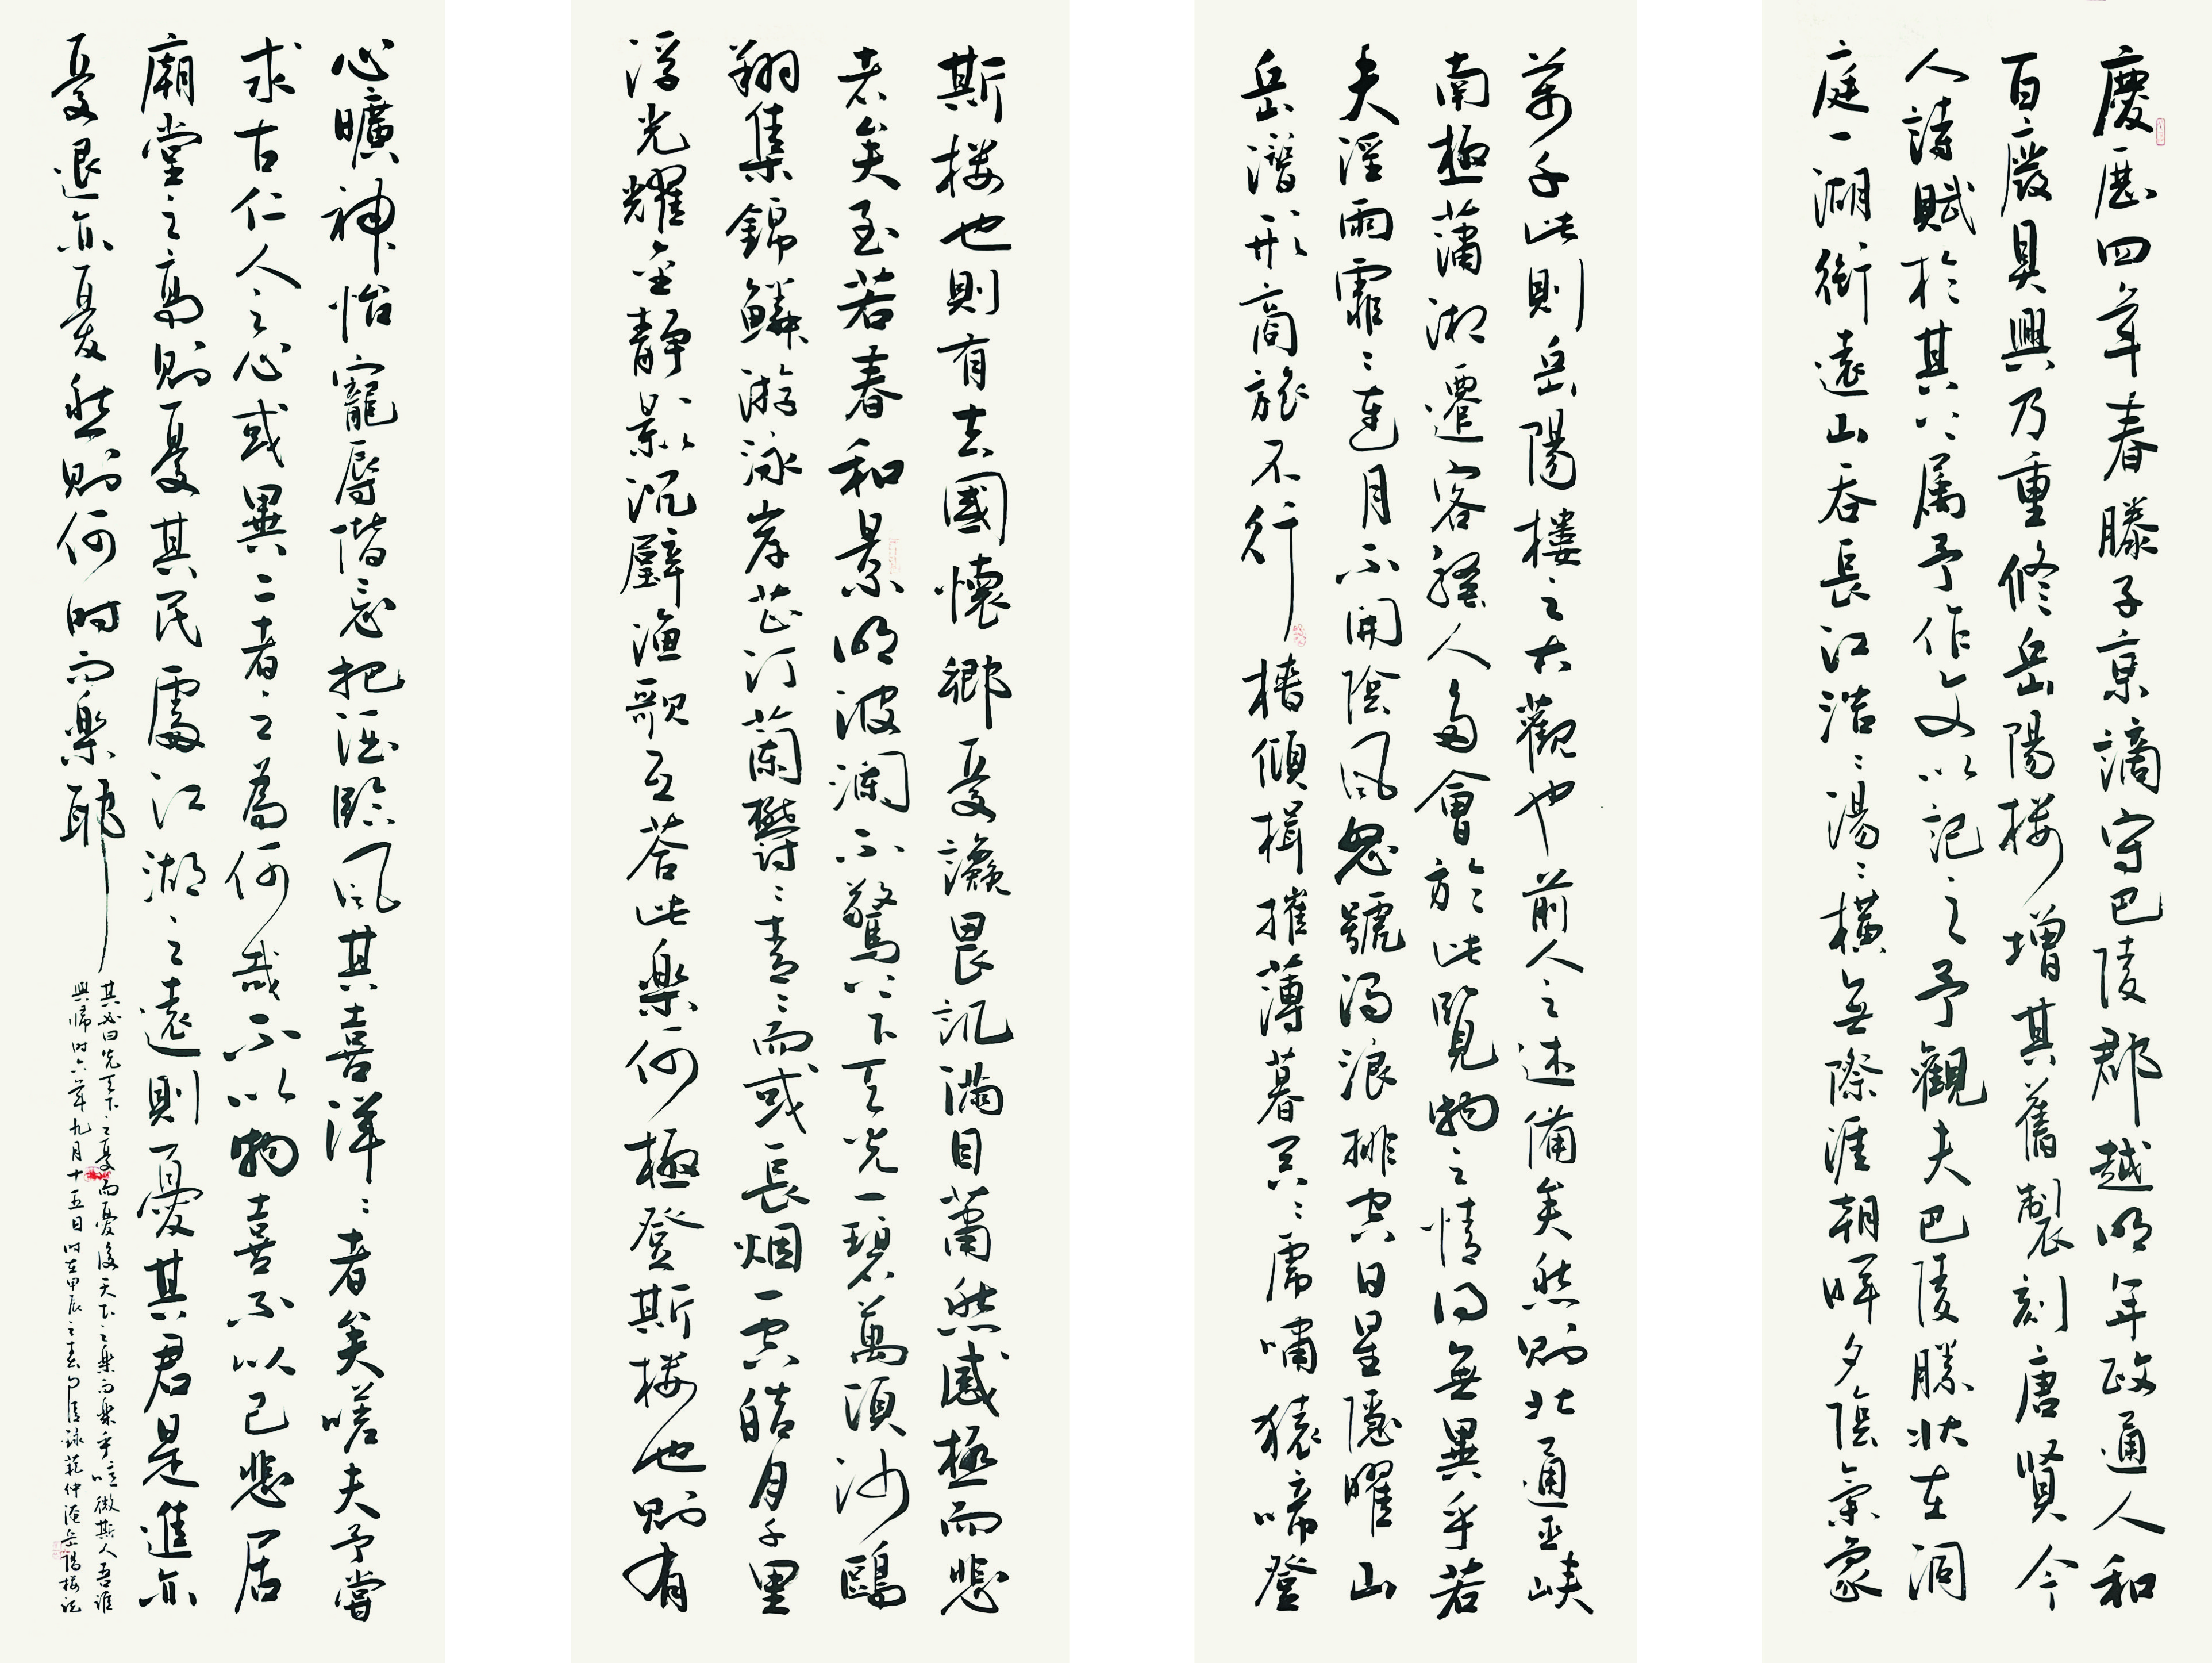 慶曆四年春滕子京謫守巴陵郡越明年政通人和
百廢具興乃重修岳陽樓增其舊製刻唐賢今
人詩賦於其上屬予作文以記之予觀夫巴陵勝狀在洞
庭一湖銜遠山吞長江浩〻湯〻橫無際涯朝暉夕陰氣象
萬千此則岳陽樓之大觀也前人之述備矣然則北通巫峽
南極瀟湘遷客騷人多會於此覽物之情得無異乎若
夫淫雨霏〻連月不開陰風怒號濁浪排空日星隱曜山
岳潛形商旅不行檣傾楫摧薄暮冥〻虎嘯猿啼登
斯樓也則有去國懷鄉憂讒畏譏滿目蕭然感極而悲
者矣至若春和景明波瀾不驚上下天光一碧萬頃沙鷗
翔集錦鱗游泳岸芷汀蘭鬱〻青〻而或長烟一空皓月千里
浮光耀金靜影沉璧漁歌互答此樂何極登斯樓也則有
心曠神怡寵辱偕忘把酒臨風其喜洋〻者矣嗟夫予嘗
求古仁人之心或異二者之為何哉不以物喜不以己悲居
廟堂之高則憂其民處江湖之遠則憂其君是進亦
憂退亦憂然則何時而樂耶
其必曰先天下之憂而憂後天下之樂而樂乎噫微斯人吾誰
與歸時六年九月十五日時在甲辰之春錄范仲淹岳陽樓記